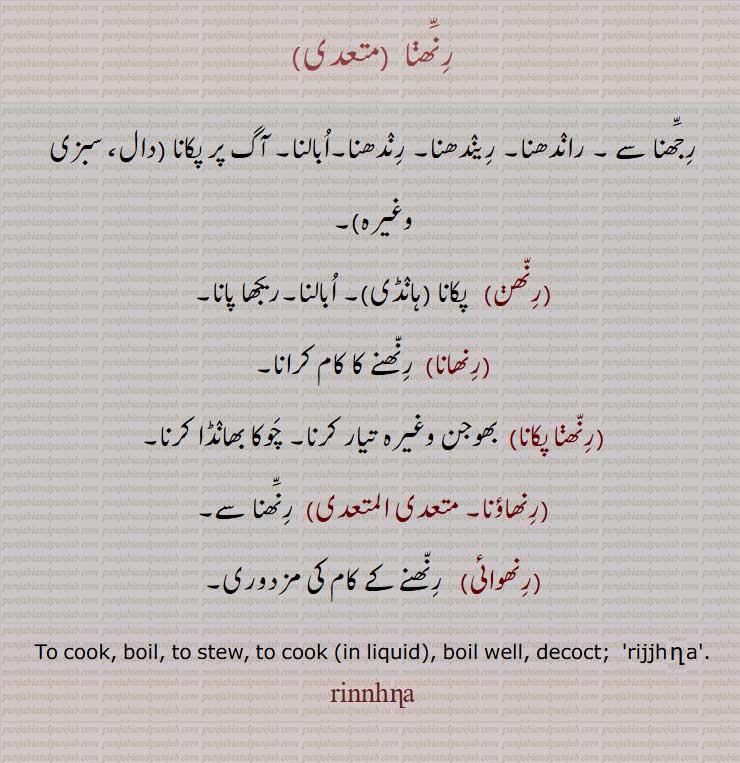 رِنِّھݨا (متعدی)
رِجِّھنا سے ۔ رانْدھنا۔ رِینْدھنا۔ رِنْدھنا۔اُبالنا۔ آگ پر پکانا (دال، سبزی
وغیرہ)۔
(رِنّھݨ) پکانا (ہانْڈی)۔ اُبالنا۔ریجھا پانا۔
(رِنھانا) رِنّھنے کا کام کرانا۔
(رِنّھݨا پکانا) بھوجن وغیرہ تیار کرنا۔ چَوکا بھانْڈا کرنا۔
(رِنھاؤنا۔ متعدی المتعدی) رِنِّھنا سے۔
(رِنھوائی) رِنّھنے کے کام کی مزدوری۔
To cook, boil, to stew, to cook (in liquid), boil well, decoct; 'rijjhƞa'.
rinnhƞa